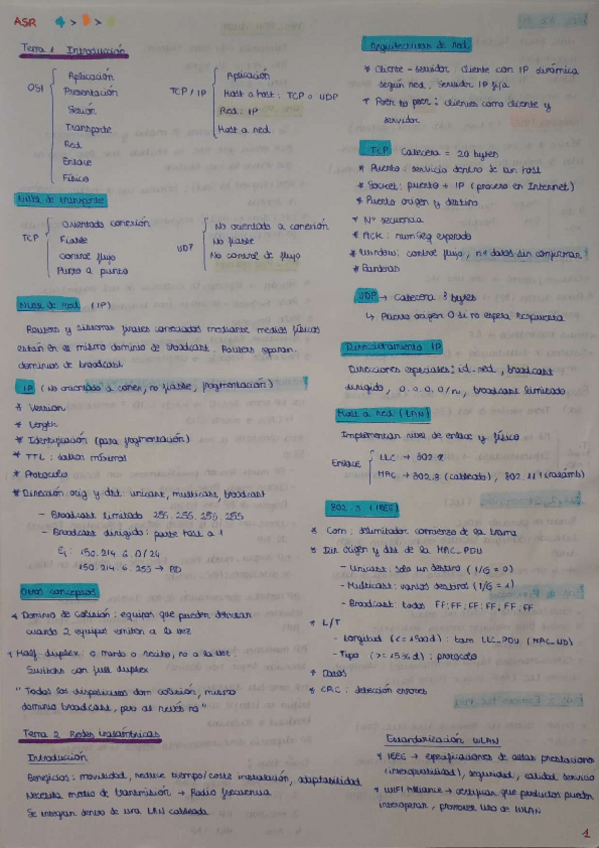 ASR > >
Tema 1 Introducción
OSI
Aplicación
Presentación
Sesión
Transporte
Red
Enlace
Físico
TCP / IP
Aplicación
Host a host : TCP o UDP
Red : IP
Host a red
Nivel de transporte
TCP
Orientado conexión
Fiable
Control flujo
Punto a punto
UDP
No orientado a conexión
No fiable
No control de flujo
Nivel de red (IP)
Routers y sistemas finales conectados mediante medios físicos
están en el mismo dominio de broadcast. Routers separan
dominios de broadcast
IP (No orientado a conex, no fiable, fragmentación)
* Version
* Length
* Identificación (para fragmentación)
* TTL : saltos máximo
* Protocolo
* Dirección orig y dst : unicast, multicast, broadcast
- Broadcast limitado 255. 255. 255. 255
- Broadcast dirigido : parte host a 1
Ej : 150. 214. 6. 0 / 24
150. 214. 6. 255 → BD
Otros conceptos
* Dominio de colisión : equipos que pueden
cuando 2 equipos emiten a la vez
* Half-duplex : o mando o recibo, no a la vez
Switchs con full duplex
"Todos los dispositivos dom colisión, mismo
dominio broadcast, pero al revés no"
Tema 2 Redes inalámbricas
Introducción
Beneficios : movilidad, reduce tiempo/coste instalación, adaptabilidad
Necesita medio de transmisión → Radio frecuencia
Se integran dentro de una LAN cableada
Arquitecturas de red
* Cliente - servidor : cliente con IP dinámica
según red, servidor IP fija
* Peer to peer : clientes como cliente y
servidor
TCP Cabecera = 20 bytes
* Puerto : servicio dentro de un host
* Socket : puerto + IP (proceso en Internet)
* Puerto origen y destino
* Nº secuencia
* ACK : numSeq esperado
* Window : control flujo, nº datos sin confirmar
* Banderas
UDP → Cabecera 8 bytes
↳ Puerto origen 0 si no espera respuesta
Direccionamiento IP
Direcciones especiales : id. red, broadcast
dirigido, 0. 0. 0. 0 /n, broadcast limitado
Host a red (LAN)
Implementan nivel de enlace y físico
Enlace
LLC → 802.2
MAC → 802.3 (cableado), 802.11 (inalámb)
802.3 (IEEE)
* Com : delimitador comienzo de la trama
* Dir origen y dst de la MAC_PDU
- Unicast : solo un destino (I/G = 0)
- Multicast : varios destinos (I/G = 1)
- Broadcast : todos FF:FF:FF:FF:FF:FF
* L/T
- Longitud (<= 1500d) : tam LLC_PDU (MAC_UD)
- Tipo (>= 1536d) : protocolo
* Datos
* CRC : detección errores
Estandarización WLAN
* IEEE → especificaciones de altas prestaciones
(interoperabilidad), seguridad, calidad servicio
* WIFI Alliance → certificar que productos pueden
interoperar, promover uso de WLAN
1